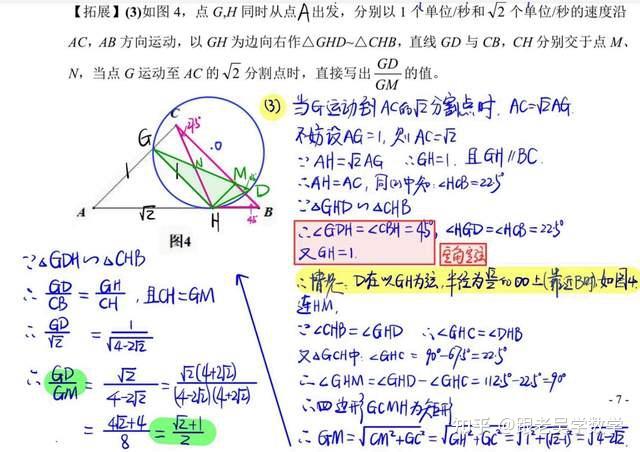 【拓展】(3)如图 4，点 G,H 同时从点A出发，分别以 1 个单位/秒和√2 个单位/秒的速度沿
AC，AB 方向运动，以 GH 为边向右作△GHD~△CHB，直线 GD 与 CB，CH 分别交于点 M、
N，当点 G 运动至 AC 的√2 分割点时，直接写出GD/GM的值。
(3) 当G运动到AC的√2分割点时. AC=√2AG.
不妨设AG=1, 则AC=√2
∵AH=√2AG ∴GH=1. 且GH∥BC.
∴AH=AC, 同(2)中知: ∠HCB=22.5°
∵△GHD∽△CHB
∴∠GDH=∠CBH=45°, ∠HGD=∠HCB=22.5°
又GH=1.
定角定弦
C
22.5°
G
·O
N
M
D
1
1
A
√2
H
45°
B
图4
∴情况一: D在以GH为弦, 半径为 的⊙O上(靠近B时), 如图4.
连HM,
∵∠CHB=∠GHD ∴∠GHC=∠DHB
又△GCH中: ∠GHC=90°-67.5°=22.5°
∴∠GHM=∠GHD-∠GHC=112.5°-22.5°=90°
∴四边形GCMH为矩形
∴GM=√CM²+GC²=√GH²+GC²=√1²+(√2-1)²=√4-2√2.
∵△GDH∽△CHB
∴GD/CB=GH/CH, 且CH=GM
∴GD/√2=1/√4-2√2
∴GD/GM=√2/4-2√2=√2(4+2√2)/(4-2√2)(4+2√2)
=4√2+4/8=√2+1/2
- 7 -
知乎 @跟老吴学数学